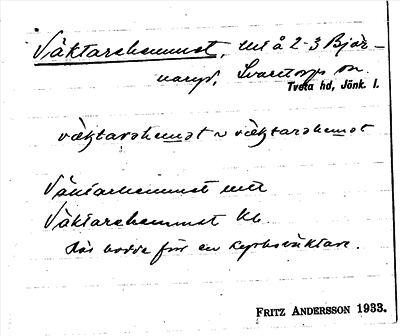 Väktarehemmet, urå 2-3 Björ-
naryd, Svarttorps sn.
Tveta hd, Jönk. l.
væktarəhemət ~ væktarəhemət
Väktarhemmet
Väktarehemmet
Här bodde för en kyrkoväktare.
FRITZ ANDERSSON 1933.